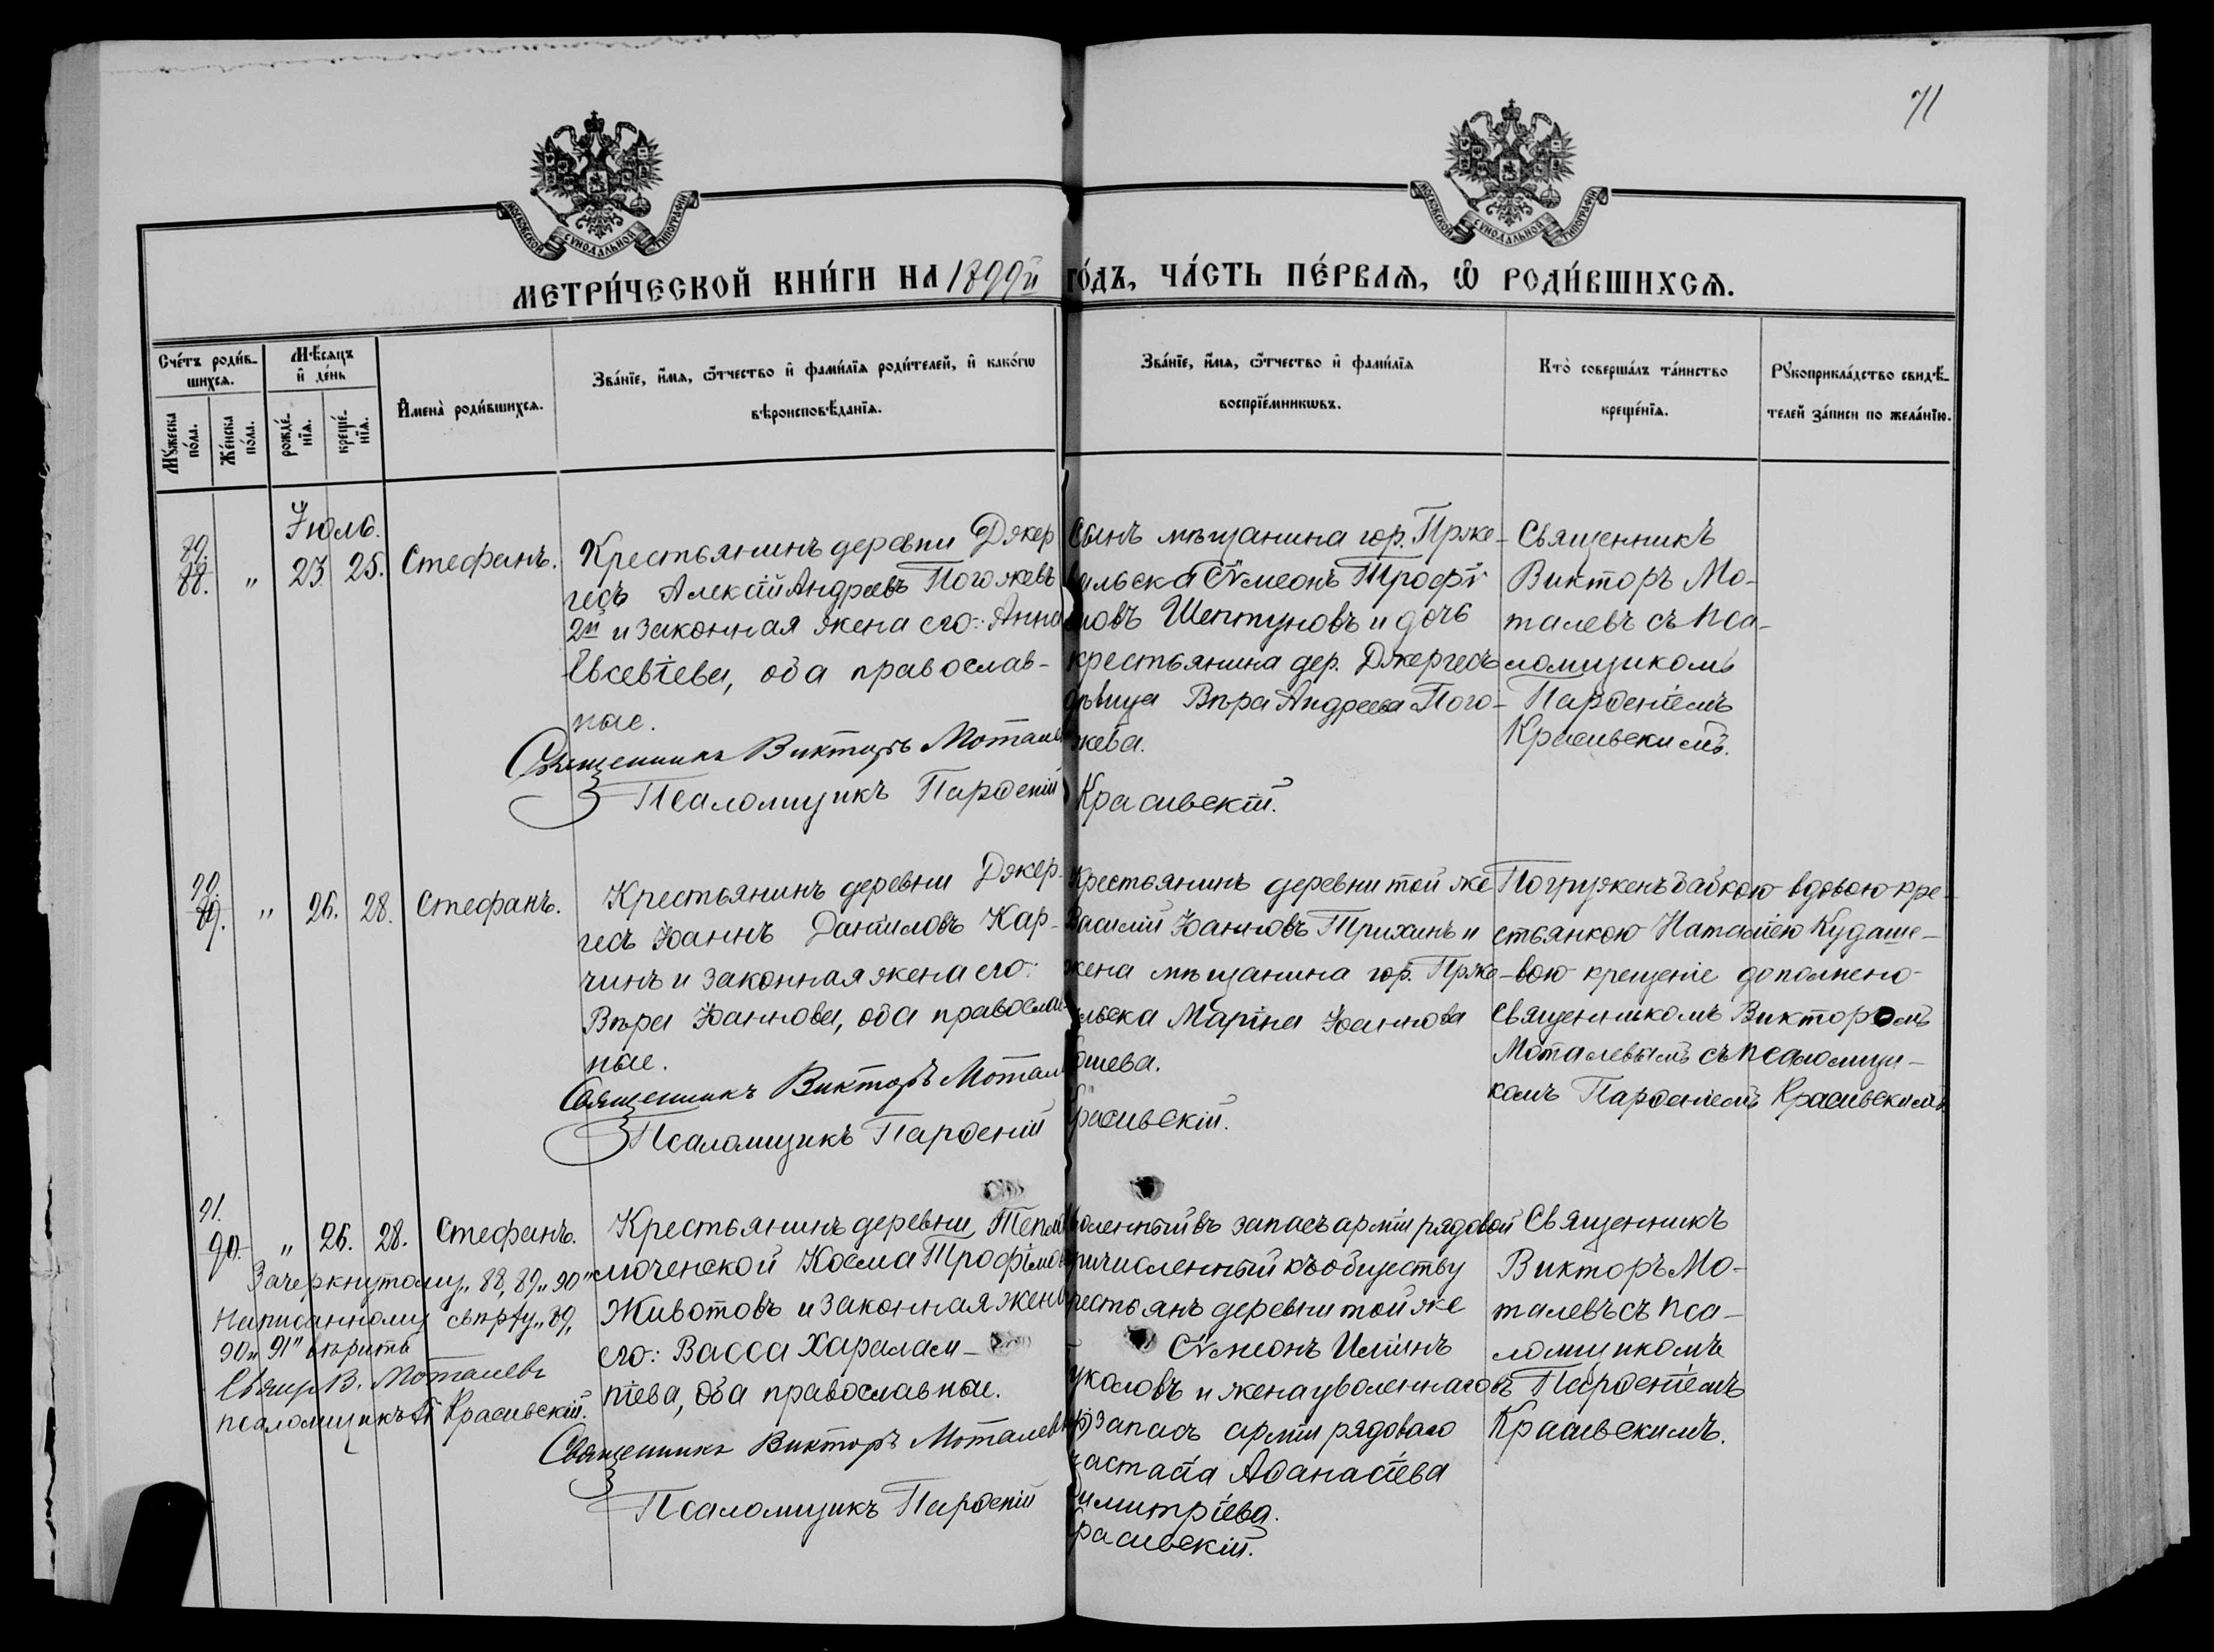 71
МОСКОВСКОЙ СѴНОДАЛЬНОЙ ТИПОГРАФІИ
МОСКОВСКОЙ СѴНОДАЛЬНОЙ ТИПОГРАФІИ
МЕТРИ́ЧЕСКОЙ КНИ́ГИ НА 1899й ГО́ДЪ, ЧА́СТЬ ПЕ́РВАѦ, Ѡ҆ РОДИ́ВШИХСѦ.
Сче́тъ роди́в-
шихсѧ.
Мѹ́жеска по́ла.
Же́нска по́ла.
Мѣ́сѧцъ
и҆ де́нь
рожде́-
нїѧ.
креще́-
нїѧ.
И҆мена̀ роди́вшихсѧ.
Зва́нїе, и҆́мѧ, ѻ҆́тчество и҆ фами́лїѧ роди́телей, и҆ како́гѡ
вѣроисповѣ́данїѧ.
Зва́нїе, и҆́мѧ, ѻ҆́тчество и҆ фами́лїѧ
воспрїе́мникѡвъ.
Кто̀ соверша́лъ та́инство
креще́нїѧ.
Рꙋкоприкла́дство свидѣ́-
телей за́писи по жела́нїю.
Іюль.
89.
88. " 23 25. Стефанъ.
Крестьянинъ деревни Джер
гесъ Алексій Андреевъ Погожевъ
2й и законная жена его: Анна
Евсевіева, оба православ-
ные.
Священникъ Викторъ Моталевъ
Псаломщикъ Парѳеній Красивскій.
Сынъ мѣщанина гор. Прже-
вальска Сѵмеонъ Трофи
мовъ Шептуновъ и дочь
крестьянина дер. Джергесъ
дѣвица Вѣра Андреева Пого-
жева.
Священникъ
Викторъ Мо-
талевъ съ пса-
ломщикомъ
Парѳеніемъ
Красивскимъ.
90.
89. " 26. 28. Стефанъ.
Крестьянинъ деревни Джер-
гесъ Іоаннъ Даниловъ Кар-
чинъ и законная жена его:
Вѣра Іоаннова, оба православ-
ные.
Священникъ Викторъ Моталевъ
Псаломщикъ Парѳеній Красивскій.
Крестьянинъ деревни той же
Василій Іоанновъ Трихинъ и
жена мѣщанина гор. Прже-
вальска Марина Іоаннова
Погруженъ бабкою вдовою кре-
стьянкою Наталіею Кудаше-
вою крещеніе дополнено
Священникомъ Викторомъ
Моталевымъ съ псаломщи-
комъ Парѳеніемъ Красивскимъ
91.
90. " 26. 28. Стефанъ.
Зачеркнутому „88, 89, 90"
Написанному сверху „89,
90 и 91" вѣрить
Свящ. В. Моталевъ
псаломщикъ П. Красивскій.
Крестьянинъ деревни Тепло
ключенской Косма Трофимовъ
Животовъ и законная жена
его: Васса Харалам-
піева, оба православные.
Священникъ Викторъ Моталевъ
Псаломщикъ Парѳеній Красивскій.
Уволенный въ запасъ арміи рядовой
причисленный къ обществу
крестьянъ деревни той же
Сѵмеонъ Илiинъ
и жена уволеннаго въ
запасъ арміи рядоваго
Анастасія Аѳанасіева
Димитріева.
Священникъ
Викторъ Мо-
талевъ съ пса-
ломщикомъ
Парѳеніемъ
Красивскимъ.